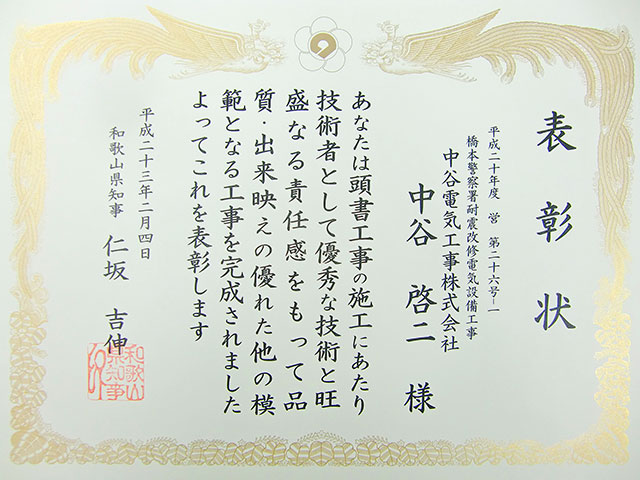 表彰状
平成二十年度 営 第二十六号ー一
橋本警察署耐震改修電気設備工事
中谷電気工事株式会社
中谷 啓二 様
あなたは頭書工事の施工にあたり
技術者として優秀な技術と旺
盛なる責任感をもって品
質・出来映えの優れた他の模
範となる工事を完成されました
よってこれを表彰します
平成二十三年二月四日
和歌山県知事 仁坂 吉伸
和歌山
県知事
印